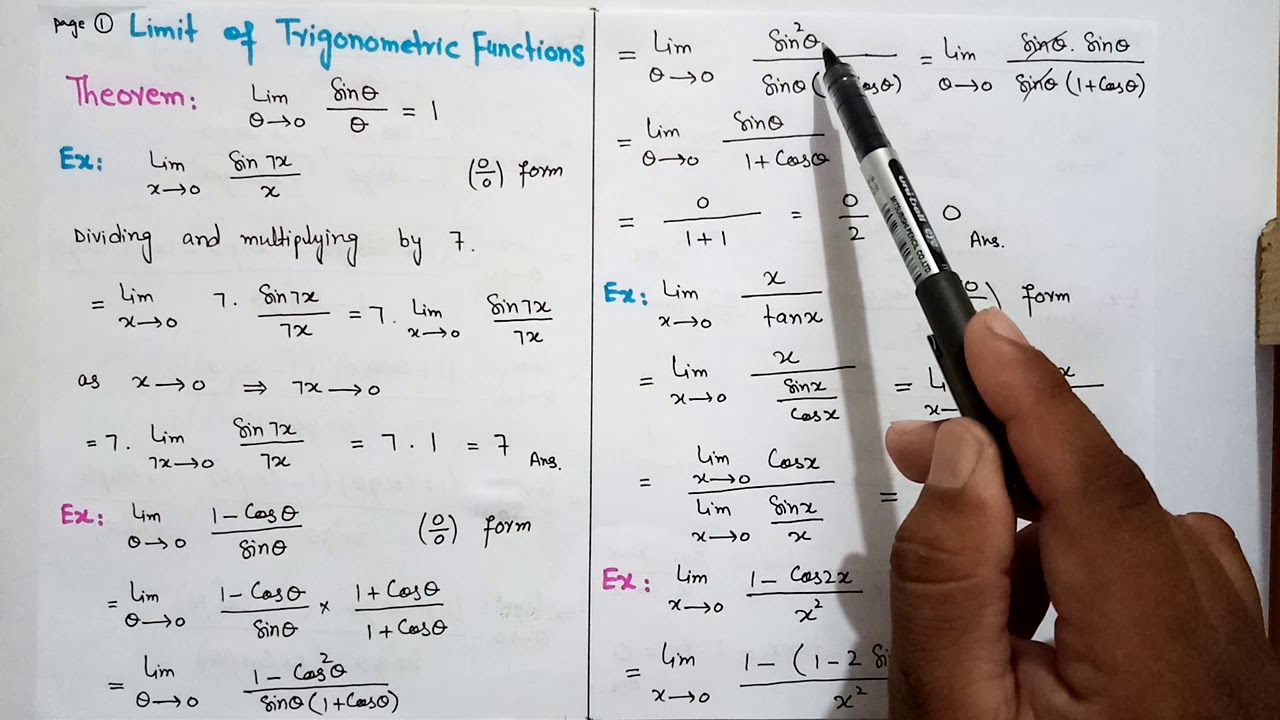 page ① Limit of Trigonometric Functions
Theorem: Lim θ→0 Sinθ/θ = 1
Ex: Lim x→0 Sin 7x/x (0/0) form
Dividing and multiplying by 7.
= Lim x→0 7. Sin 7x/7x = 7. Lim x→0 Sin 7x/7x
as x→0 ⇒ 7x→0
= 7. Lim 7x→0 Sin 7x/7x = 7 . 1 = 7 Ans.
Ex: Lim θ→0 1 - Cosθ/Sinθ (0/0) form
= Lim θ→0 1 - Cosθ/Sinθ × 1 + Cosθ/1 + Cosθ
= Lim θ→0 1 - Cos²θ/Sinθ (1 + Cosθ)
= Lim θ→0 Sin²θ/Sinθ ( Cosθ) = Lim θ→0 Sinθ. Sinθ/Sinθ (1 + Cosθ)
= Lim θ→0 Sinθ/1 + Cosθ
= 0/1 + 1 = 0/2 0 Ans.
Ex: Lim x→0 x/tanx (0/ ) form
= Lim x→0 x/Sinx/Cosx = x
= Lim x→0 Cosx/Lim x→0 Sinx/x =
Ex: Lim x→0 1 - Cos2x/x²
= Lim x→0 1 - (1 - 2 /x²
uni-ball eye
MITSUBISHI PENCIL CO.LTD